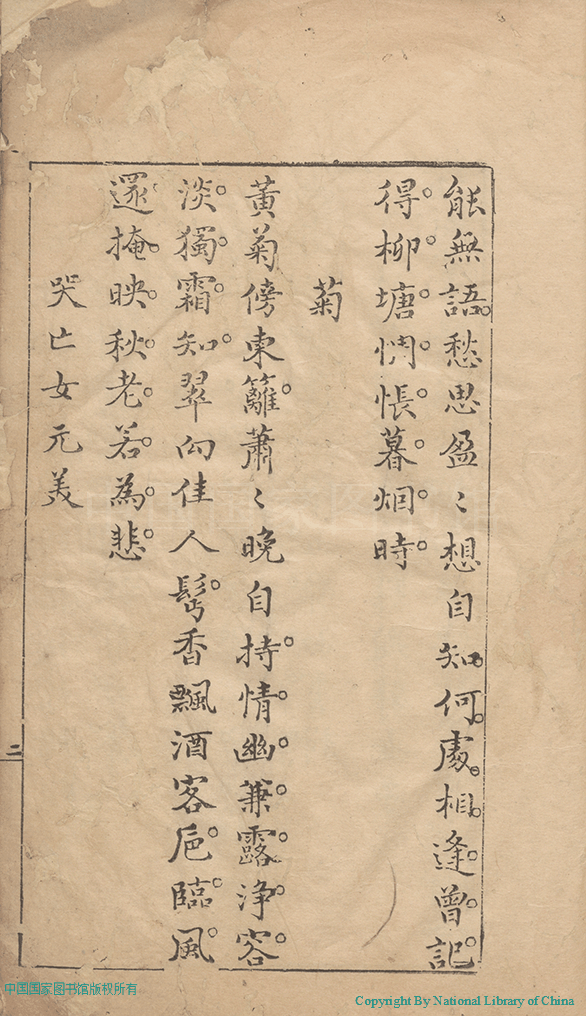 能無語愁思盈〻想自知何處相逢曾記
得柳塘惆悵暮烟時
菊
黃菊傍東籬蕭〻晚自持情幽兼露淨容
淡獨霜知翠向佳人髩香飄酒客巵臨風
還掩映秋老若為悲
哭亡女元美
二
中国国家图书馆版权所有
Copyright By National Library of China